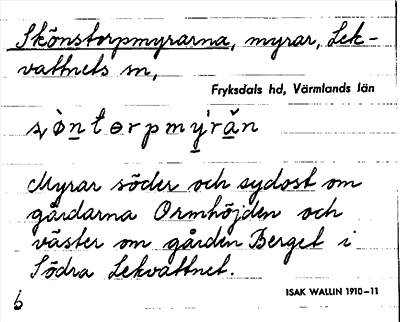 Skönstorpmyrarna, myrar, Lek-
vattnets sn,
Fryksdals hd, Värmlands län
Myrar söder och sydost om
gårdarna Ormhöjden och
väster om gården Berget i
Södra Lekvattnet.
6
ISAK WALLIN 1910-11